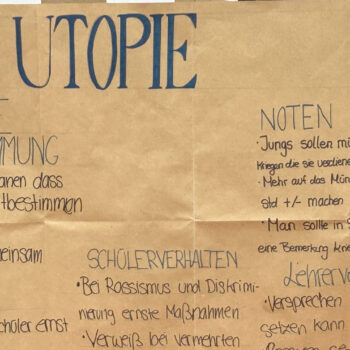 UTOPIE
MMUNG
anen dass
tbestimmen
einsam
chüler ernst
SCHÜLERVERHALTEN
· Bei Raessismus und Diskrimi-
nierung ernste Maßnahmen
· Verweiß bei vermehrten
NOTEN
· Jungs sollen mü
kriegen die sie verdiene
· Mehr auf das Mün
std +/- machen
· Man sollte in S
eine Bemerkung krie
Lehrerve
· Versprechen
setzen kann